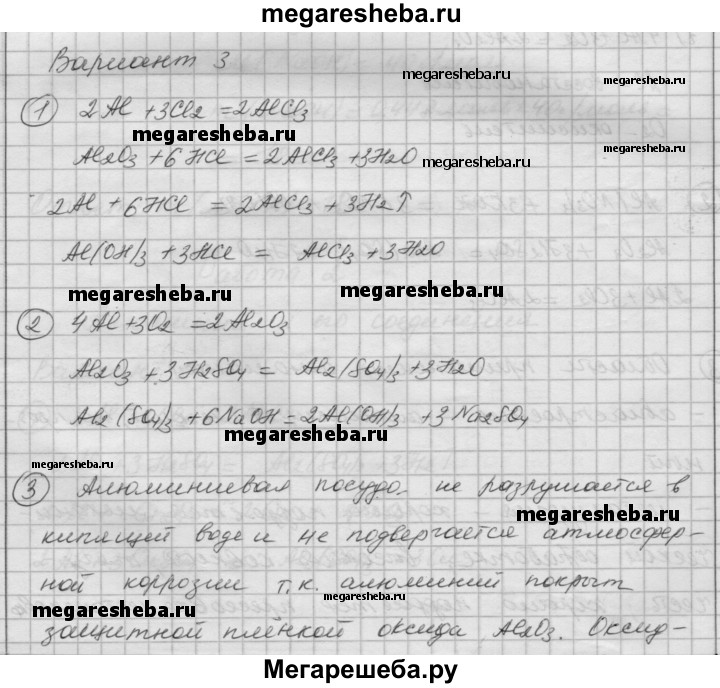 megaresheba.ru
Вариант 3
megaresheba.ru
① 2Al + 3Cl2 = 2AlCl3
megaresheba.ru
Al2O3 + 6HCl = 2AlCl3 + 3H2O
megaresheba.ru
2Al + 6HCl = 2AlCl3 + 3H2↑
Al(OH)3 + 3HCl = AlCl3 + 3H2O
megaresheba.ru
megaresheba.ru
② 4Al + 3O2 = 2Al2O3
Al2O3 + 3H2SO4 = Al2(SO4)3 + 3H2O
Al2(SO4)3 + 6NaOH = 2Al(OH)3 + 3Na2SO4
megaresheba.ru
megaresheba.ru
③ Алюминиевая посуда не разрушается в
megaresheba.ru
кипящей воде и не подвергается атмосфер-
ной коррозии т.к. алюминий покрыт
megaresheba.ru
megaresheba.ru
защитной плёнкой оксида Al2O3. Оксид-
Мегарешеба.ру